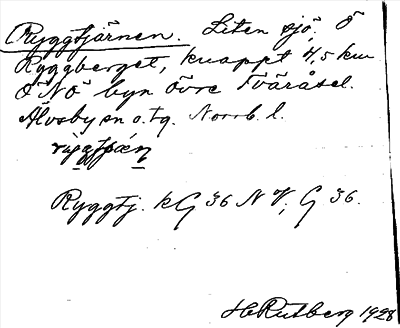 Ryggtjärnen. Liten sjö, Ö
Ryggberget, knappt 4,5 km
ÖNÖ byn Övre Tväråsel.
Älvsby sn o. tg. Norrb. l.
Ryggtj. kG 36 NV, G 36.
H Rutberg 1928